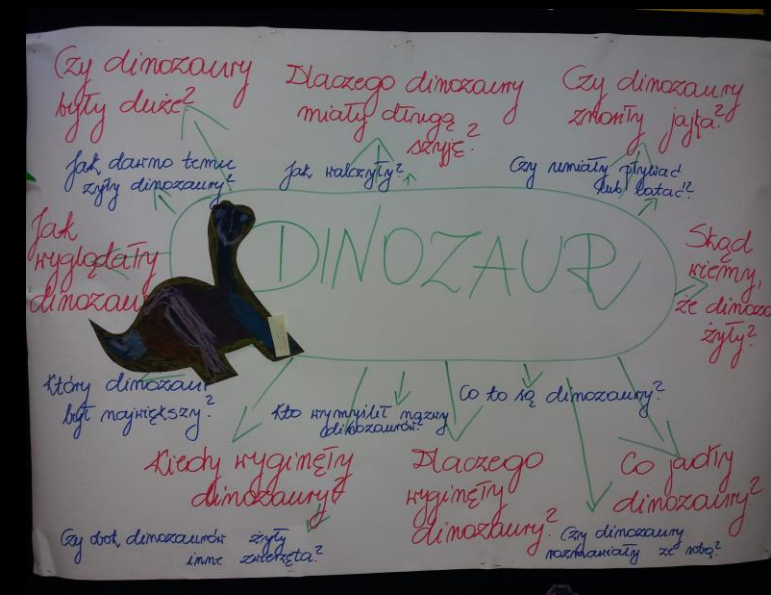 Czy dinozaury
były duże?
Dlaczego dinozaury
miały długą
szyję?
Czy dinozaury
znosiły jajka?
Jak dawno temu
żyły dinozaury?
Jak walczyły?
Czy umiały pływać
lub latać?
Jak
wyglądały
dinozau
DINOZAUR
Skąd
wiemy,
że dinoza
żyły?
Który dinozaur
był największy?
Kto wymyślił nazwy
dinozaurów?
Co to są dinozaury?
Kiedy wyginęły
dinozaury?
Dlaczego
wyginęły
dinozaury?
Co jadły
dinozaury?
Czy obok dinozaurów żyły
inne zwierzęta?
Czy dinozaury
rozmawiały ze sobą?